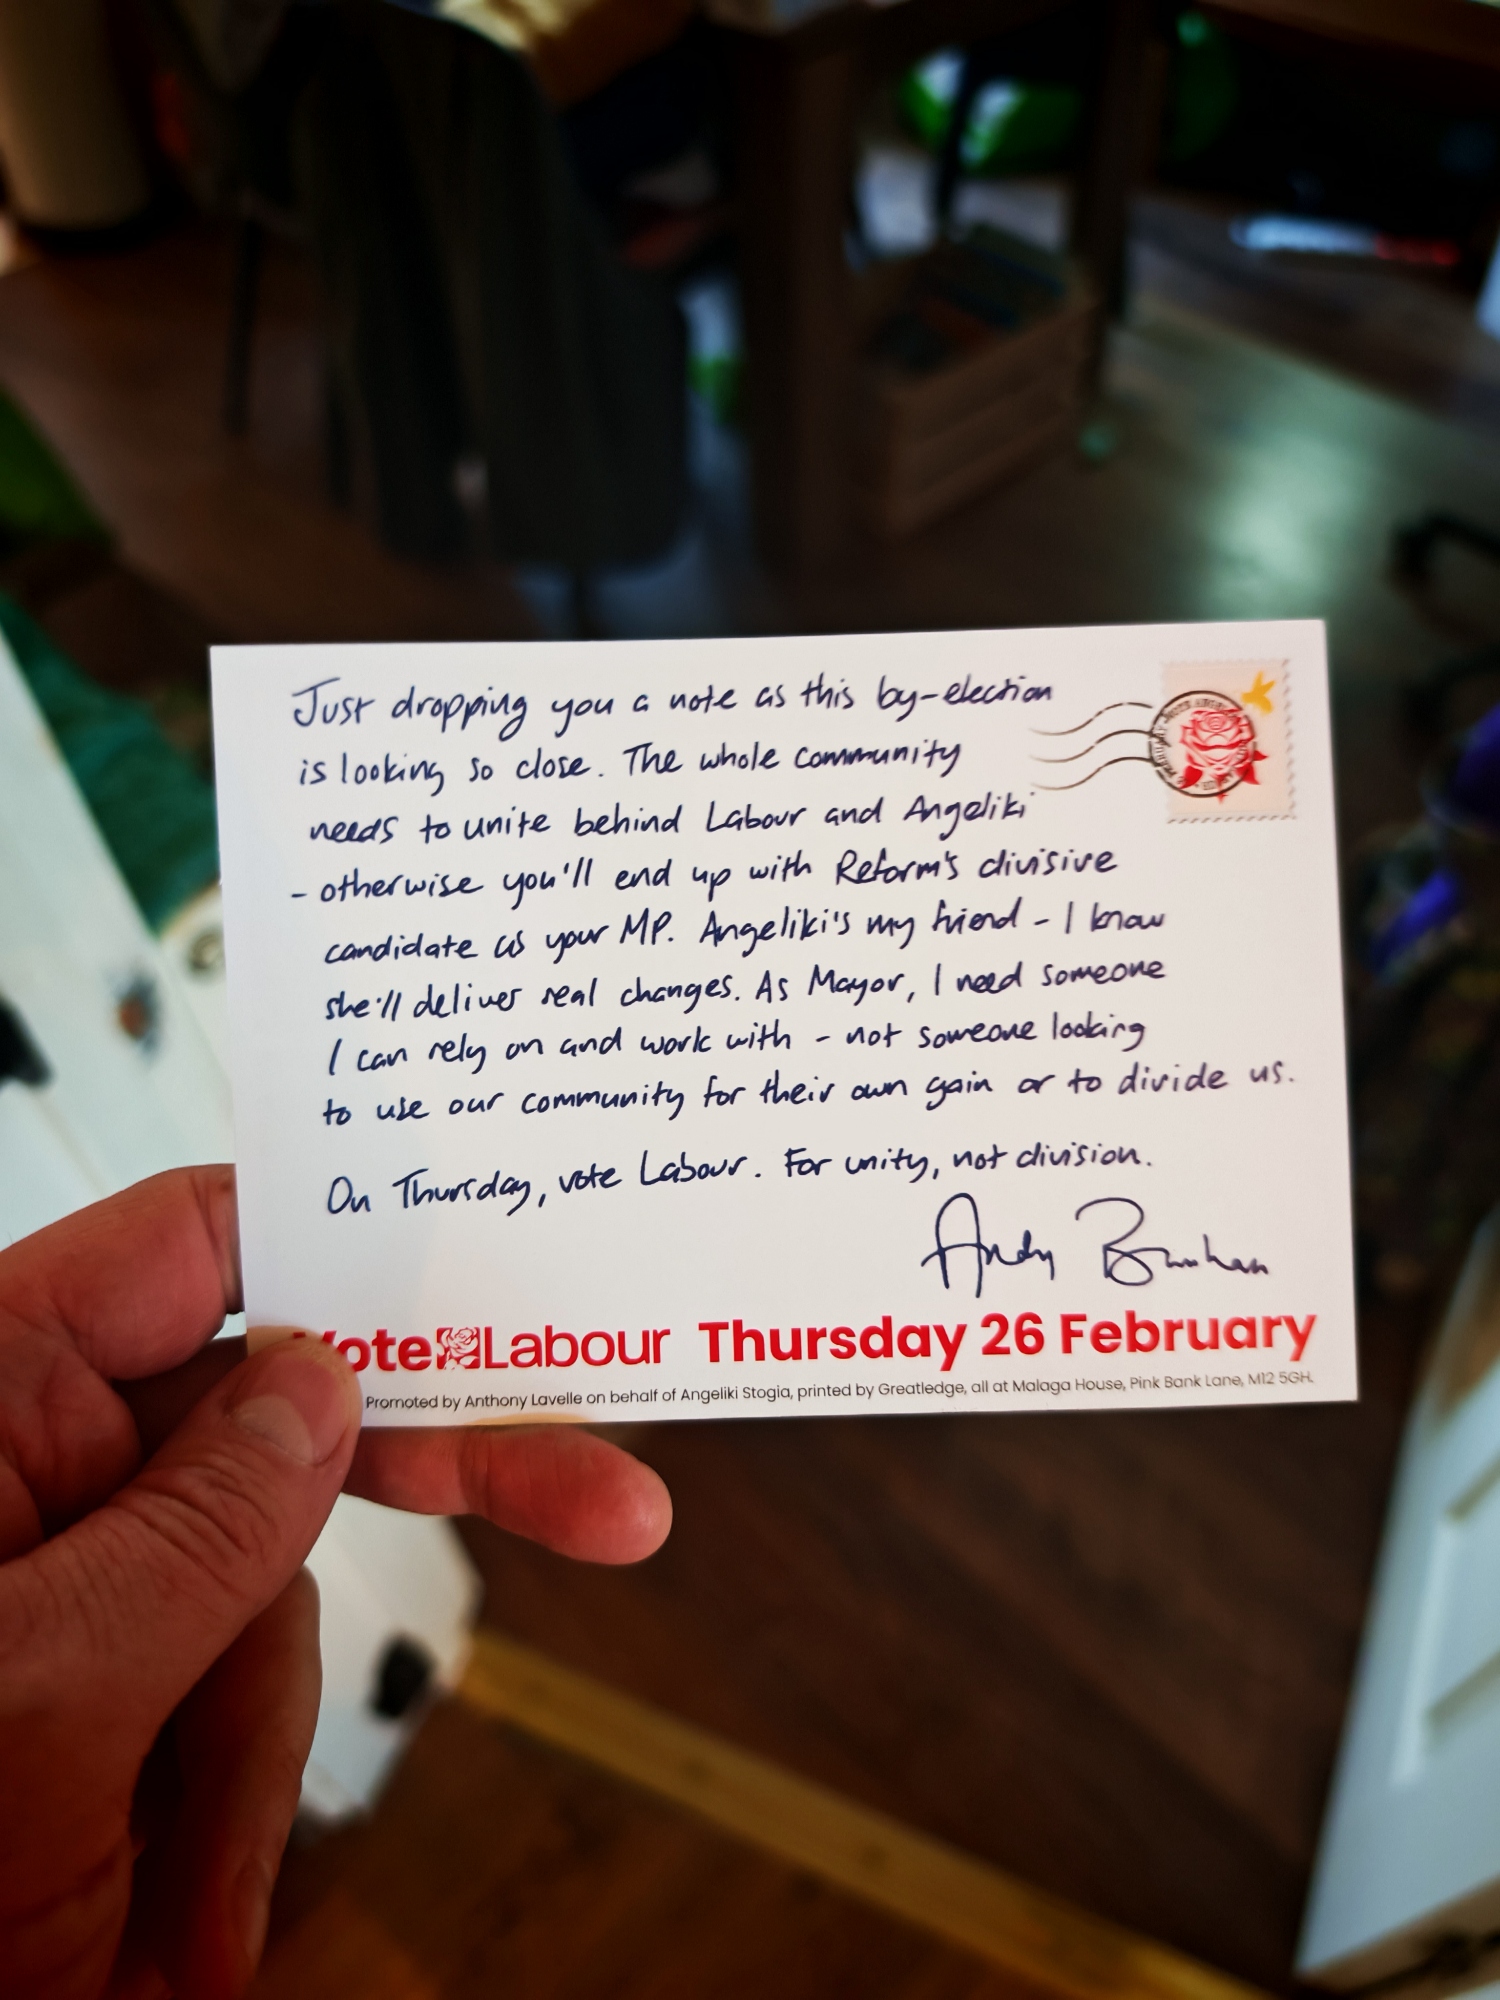 Just dropping you a note as this by-election
is looking so close. The whole community
needs to unite behind Labour and Angeliki
- otherwise you'll end up with Reform's divisive
candidate as your MP. Angeliki's my friend - I know
she'll deliver real changes. As Mayor, I need someone
I can rely on and work with - not someone looking
to use our community for their own gain or to divide us.
On Thursday, vote Labour. For unity, not division.
Andy Burnham
Vote Labour Thursday 26 February
Promoted by Anthony Lavelle on behalf of Angeliki Stogia, printed by Greatledge, all at Malaga House, Pink Bank Lane, M12 5GH.